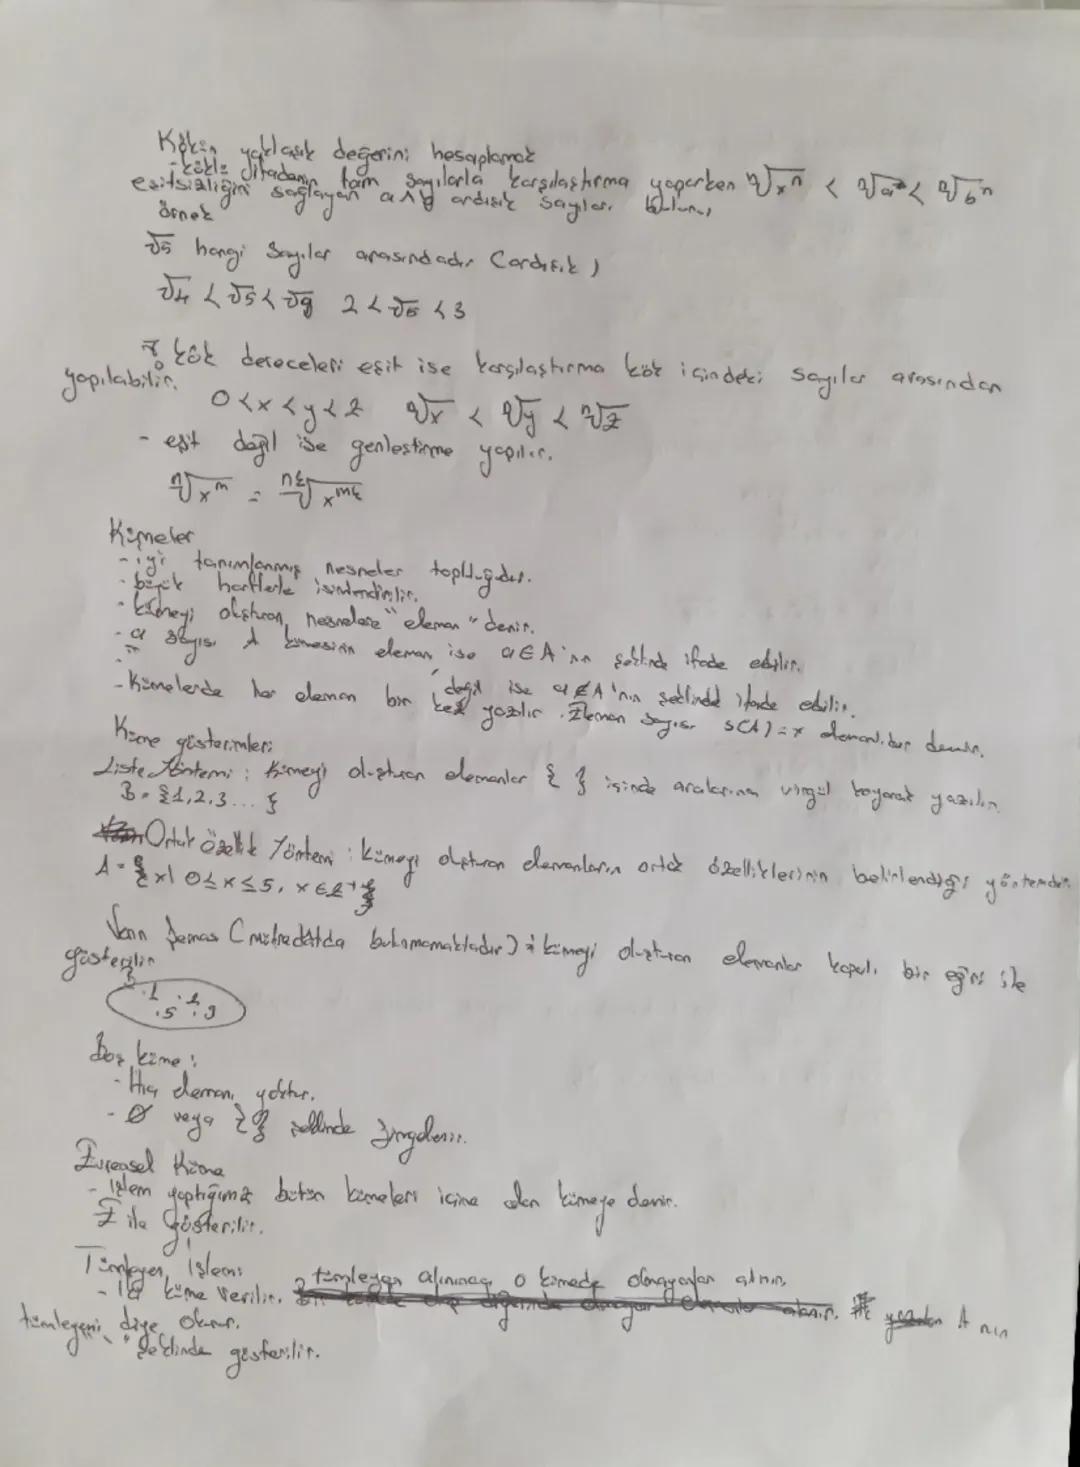 Kökün yaklaşık değerini hesaplamak
-köklü ifadenin tam sayılarla karşılaştırma yaparken ⁿ√xⁿ < ⁿ√a < ⁿ√bⁿ
eşitsizliğini sağlayan a ∧ b ardışık sayıları bulunur
örnek
√5 hangi sayılar arasındadır (ardışık)
√4 < √5 < √9 2 < √5 < 3
kök dereceleri eşit ise karşılaştırma kök içindeki sayılar arasından
yapılabilir.
0<x<y<z ⁿ√x < ⁿ√y < ⁿ√z
- eşit değil ise genleştirme yapılır.
ⁿ√xᵐ = ⁿᵏ√xᵐᵏ
Kümeler
- iyi tanımlanmış nesneler topluluğudur.
- büyük harflerle isimlendirilir.
- kümeyi oluşturan nesnelere "eleman" denir.
- a sayısı A kümesinin elemanı ise a∈A'nın şeklinde ifade edilir.
" " değil ise a∉A'nın şeklinde ifade edilir.
- Kümelerde her eleman bir kez yazılır. Eleman sayısı s(A)=x elemanlıdır denir.
Küme gösterimleri
Liste Yöntemi: Kümeyi oluşturan elemanlar { } içinde aralarına virgül koyarak yazılır.
B = {1,2,3...}
Ortak özellik Yöntemi: kümeyi oluşturan elemanların ortak özelliklerinin belirlendiği yöntemdir.
A = {x| 0≤x≤5, x∈Z⁺}
Venn Şeması (müfredatda bulunmamaktadır): kümeyi oluşturan elemanlar kapalı bir eğri ile
gösterilir
.1 .2 .5 .9
Boş küme:
- Hiç elemanı yoktur.
- Ø veya { } şeklinde simgelenir.
Evrensel Küme
- İşlem yaptığımız bütün kümeleri içine alan kümeye denir.
E ile gösterilir.
Tümleyen İşlemi
- İki küme verilir. tümleyen alınınca o kümede olmayanlar alınır. A nın
tümleyeni diye okunur.
" ' " şeklinde gösterilir.